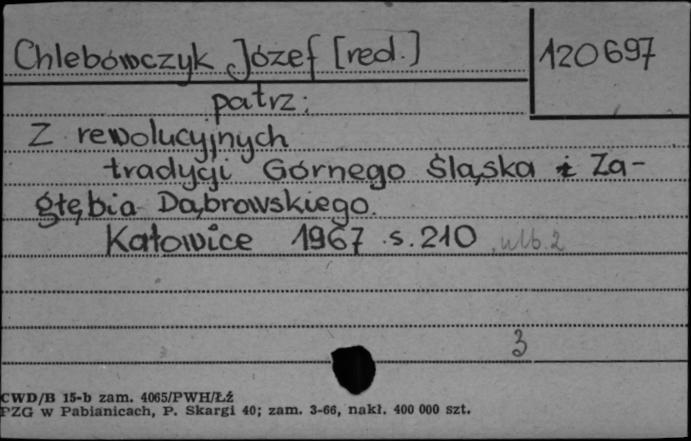 Chlebówczyk Józef [red.]
120697
patrz:
Z rewolucyjnych
tradycji Górnego Śląska i Za-
głębia Dąbrowskiego.
Katowice 1967 s. 210, nlb. 2
3
CWD/B 15-b zam. 4065/PWH/Łź
PZG w Pabianicach, P. Skargi 40; zam. 3-66, nakł. 400 000 szt.